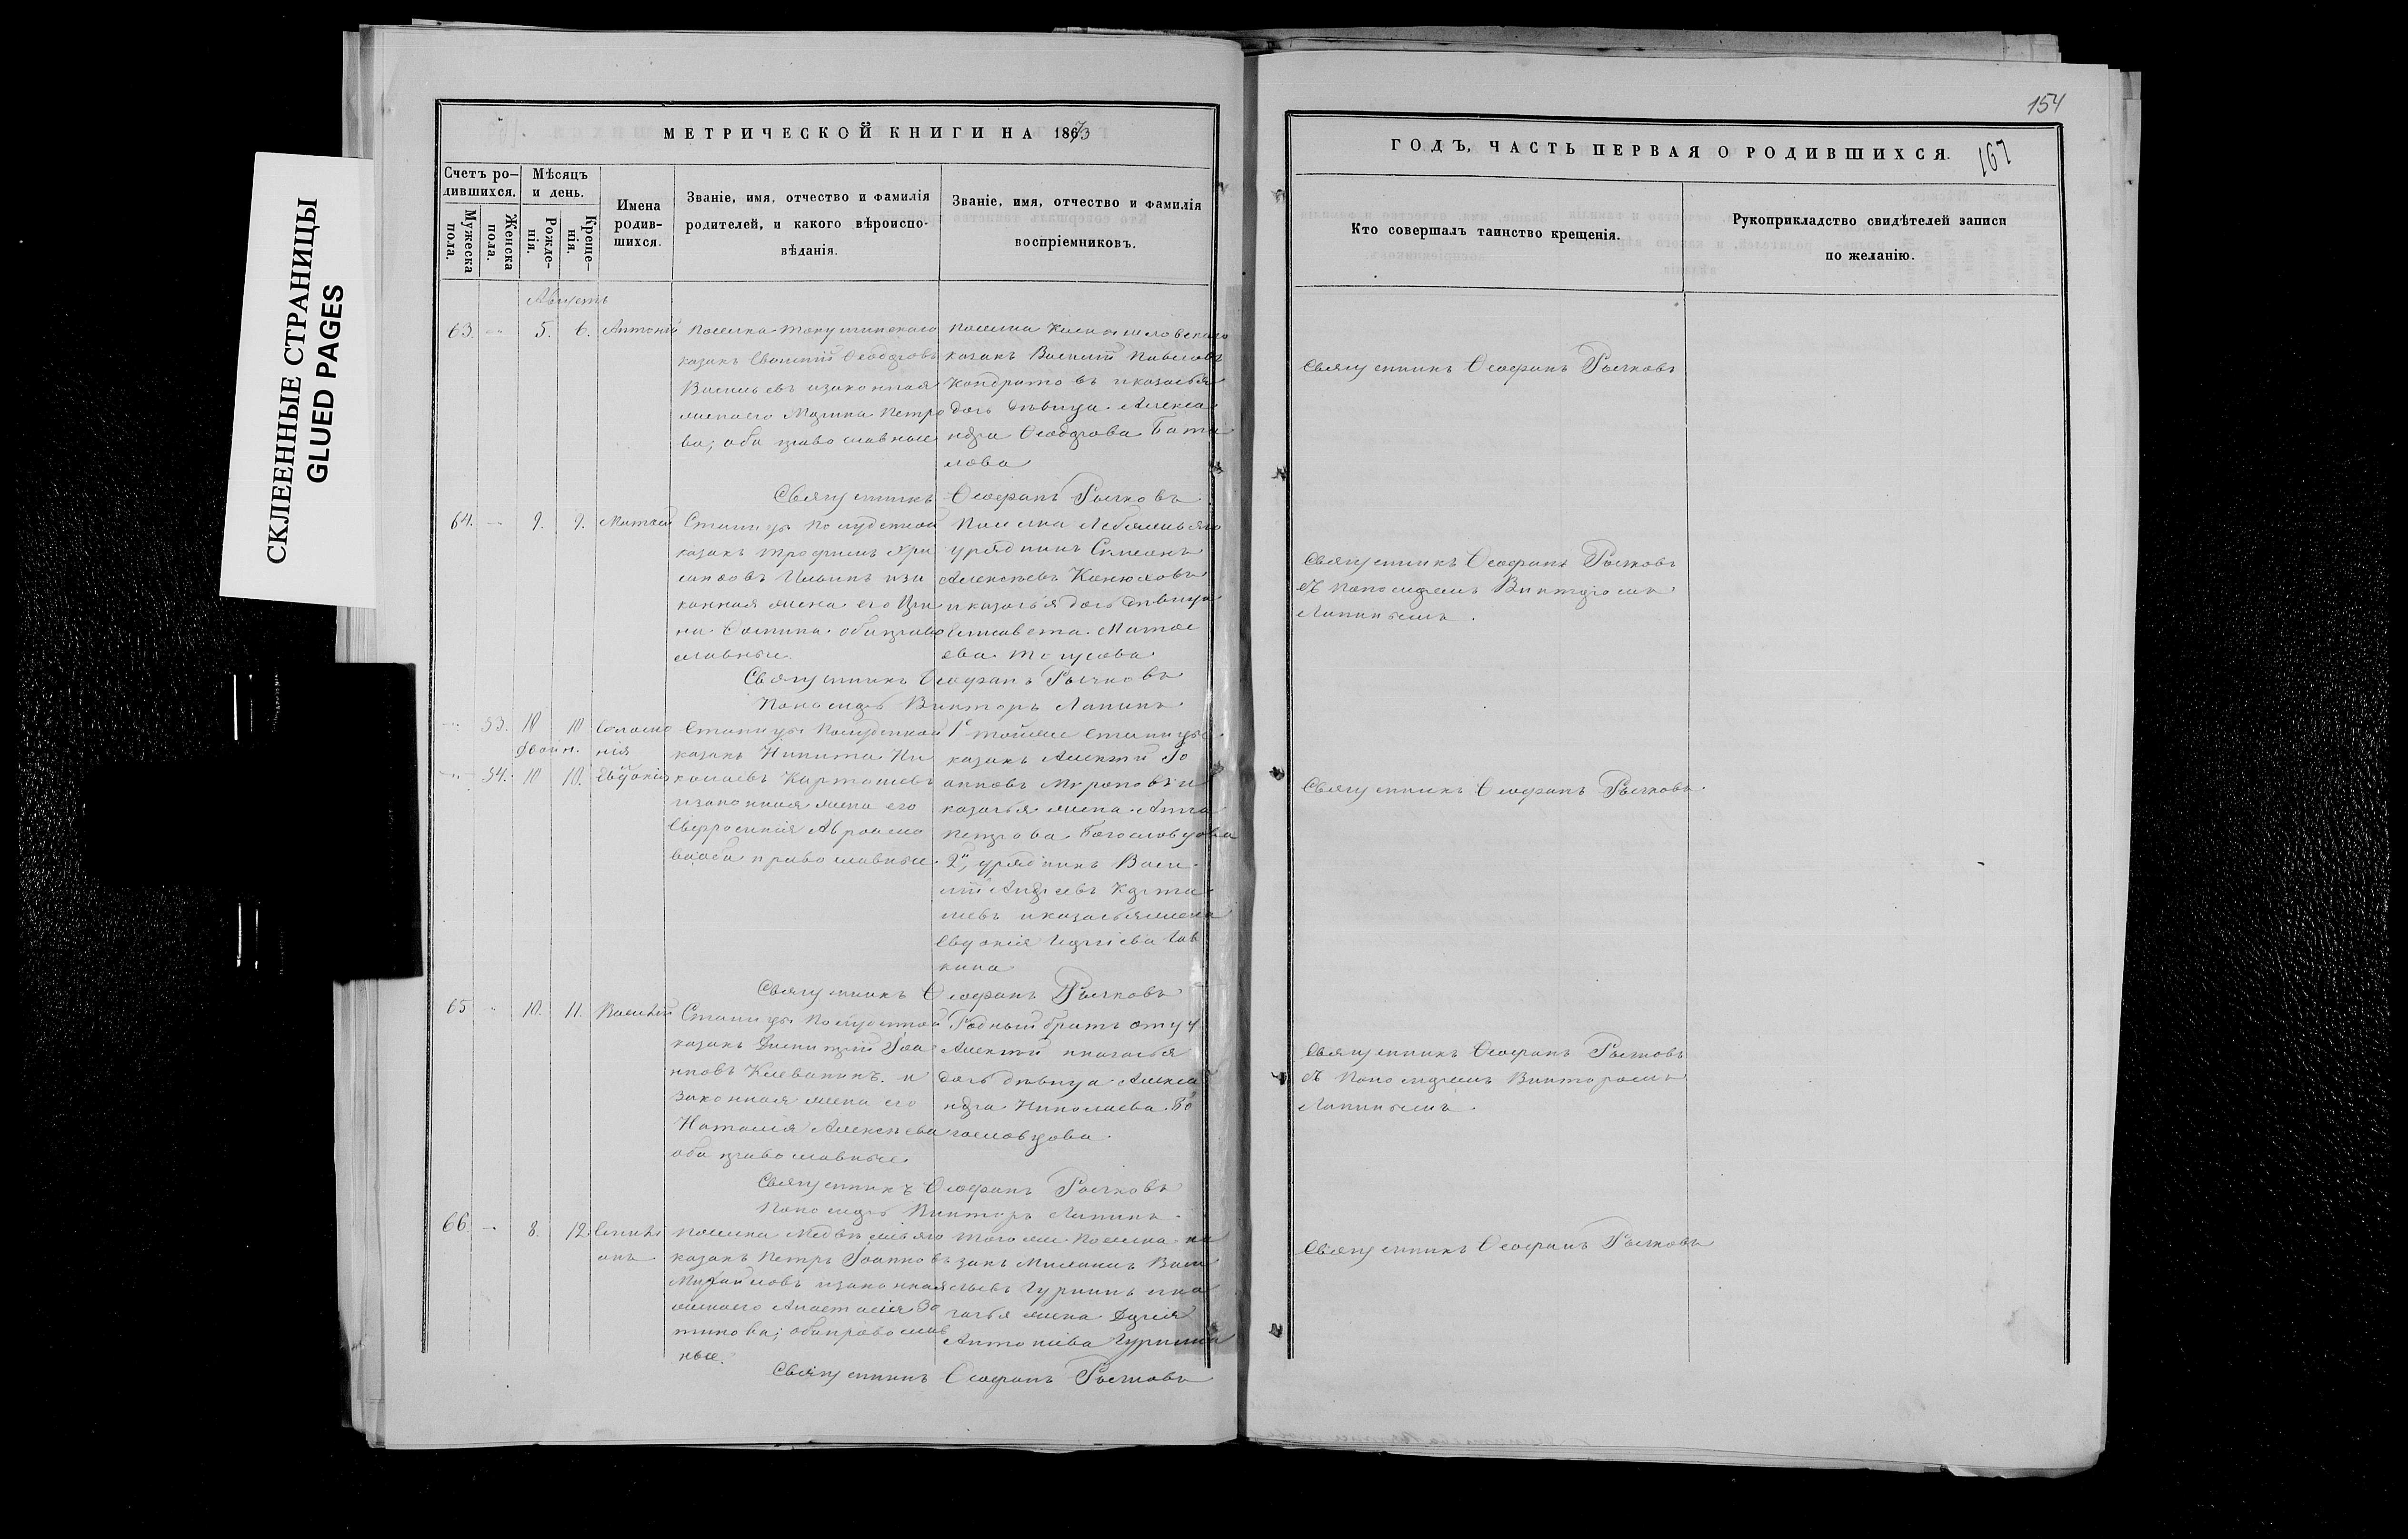 СКЛЕЕННЫЕ СТРАНИЦЫ
GLUED PAGES
МЕТРИЧЕСКОЙ КНИГИ НА 1873
Счетъ ро-
дившихся.
Мужеска
пола.
Женска
пола.
Мѣсяцъ
и день.
Рожде-
нія.
Креще-
нія.
Имена
родив-
шихся.
Званіе, имя, отчество и фамилія
родителей, и какого вѣроиспо-
вѣданія.
Званіе, имя, отчество и фамилія
воспріемниковъ.
Августъ
63. 5. 6. Антоній
казакъ Евгеній Ѳеодоровъ
Васильевъ и законная
жена его Марина Петро
ва; оба православные
казакъ Василій Павловъ
Кондратовъ и казачья
дочь дѣвица Алекса
ндра Ѳеодорова Бата
лова
Священникъ Ѳеофанъ Рычковъ
64. 9. 9. Матѳей
Станицы Полуденной
казакъ Трофимъ Хри
санѳовъ Ильинъ и за
конная жена его Ири
на Ѳомина оба право
славные
Поселка Лебяжьяго
урядникъ Симеонъ
Алексѣевъ Конюховъ
и казачья дочь дѣвица
Елисавета Матѳе
ева
Священникъ Ѳеофанъ Рычковъ
Псаломщ Викторъ Лапинъ
53. 10 10 Соломо
нія
двойн.
54. 10 10. Евдокія
Станицы Полуденной
казакъ Никита Ни
колаевъ Карташевъ
и законная жена его
Евфросинія Авраамо
ва оба православные
1 той же станицы
казакъ Алексій Іо
анновъ Мироновъ и
казачья жена Анна
Петрова Богословцова
2, урядникъ Васи
лій Андреевъ Карта
шевъ и казачья жена
Евдокія
кина
Священникъ Ѳеофанъ Рычковъ
65 10. 11. Василій
Станицы Полуденной
казакъ Димитрій Іоа
нновъ Клевакинъ и
законная жена его
Наталія Алексѣева
оба православные.
Родный братъ отцу
Алексій и казачья
дочь дѣвица Алекса
ндра Николаева Бо
гословцова.
Священникъ Ѳеофанъ Рычковъ
Викторъ Лапинъ
66 8. 12
Поселка Медвѣжьяго
казакъ Петръ Іоанновъ
Михайловъ и законная
жена его Анастасія Зо
тикова; оба православ
ные.
Того же поселка ка
закъ Михаилъ Васи
льевъ Гуркинъ и ка
зачья жена Дарія
Антоніева Гуркина
Священникъ Ѳеофанъ Рычковъ
154
ГОДЪ, ЧАСТЬ ПЕРВАЯ О РОДИВШИХСЯ.
167
Кто совершалъ таинство крещенія.
Рукоприкладство свидѣтелей записи
по желанію.
Священникъ Ѳеофанъ Рычковъ
Священникъ Ѳеофанъ Рычковъ
Викторомъ
Лапинымъ.
Священникъ Ѳеофанъ Рычковъ.
Священникъ Ѳеофанъ Рычковъ
Викторомъ
Лапинымъ.
Священникъ Ѳеофанъ Рычковъ